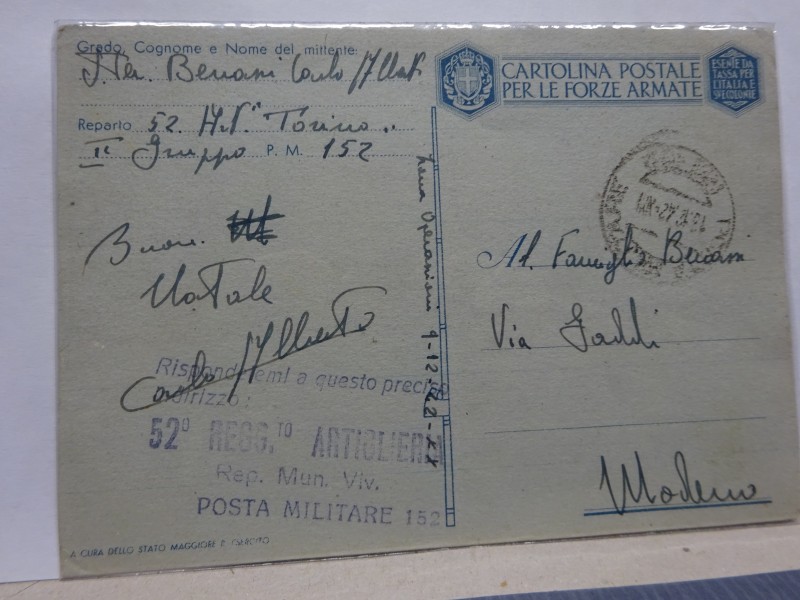 Grado, Cognome e Nome del mittente
S.Ten. Benassi Carlo Alberto
Reparto 52. Art. Torino..
II° Gruppo P. M. 152
Buon
Natale
Carlo Alberto
Rispondetemi a questo preciso
indirizzo:
52° REGG.TO ARTIGLIERIA
Rep. Mun. Viv.
POSTA MILITARE 152
A CURA DELLO STATO MAGGIORE R. ESERCITO
Zona Operazioni 9-12-42-XX
CARTOLINA POSTALE
PER LE FORZE ARMATE
ESENTE DA
TASSA PER
L'ITALIA E
Al. Famiglia Benassi
Via Gaddi
Modena